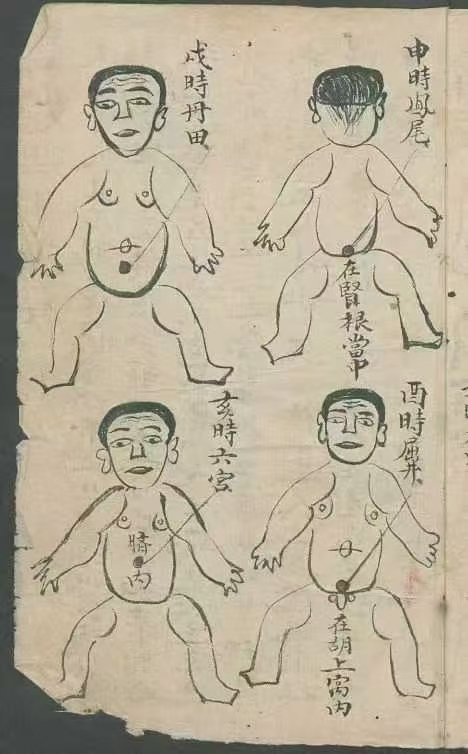 申時鳳尾
在賢根當中
酉時屈井
在胡上窩內
戌時丹田
亥時六宮
臍內